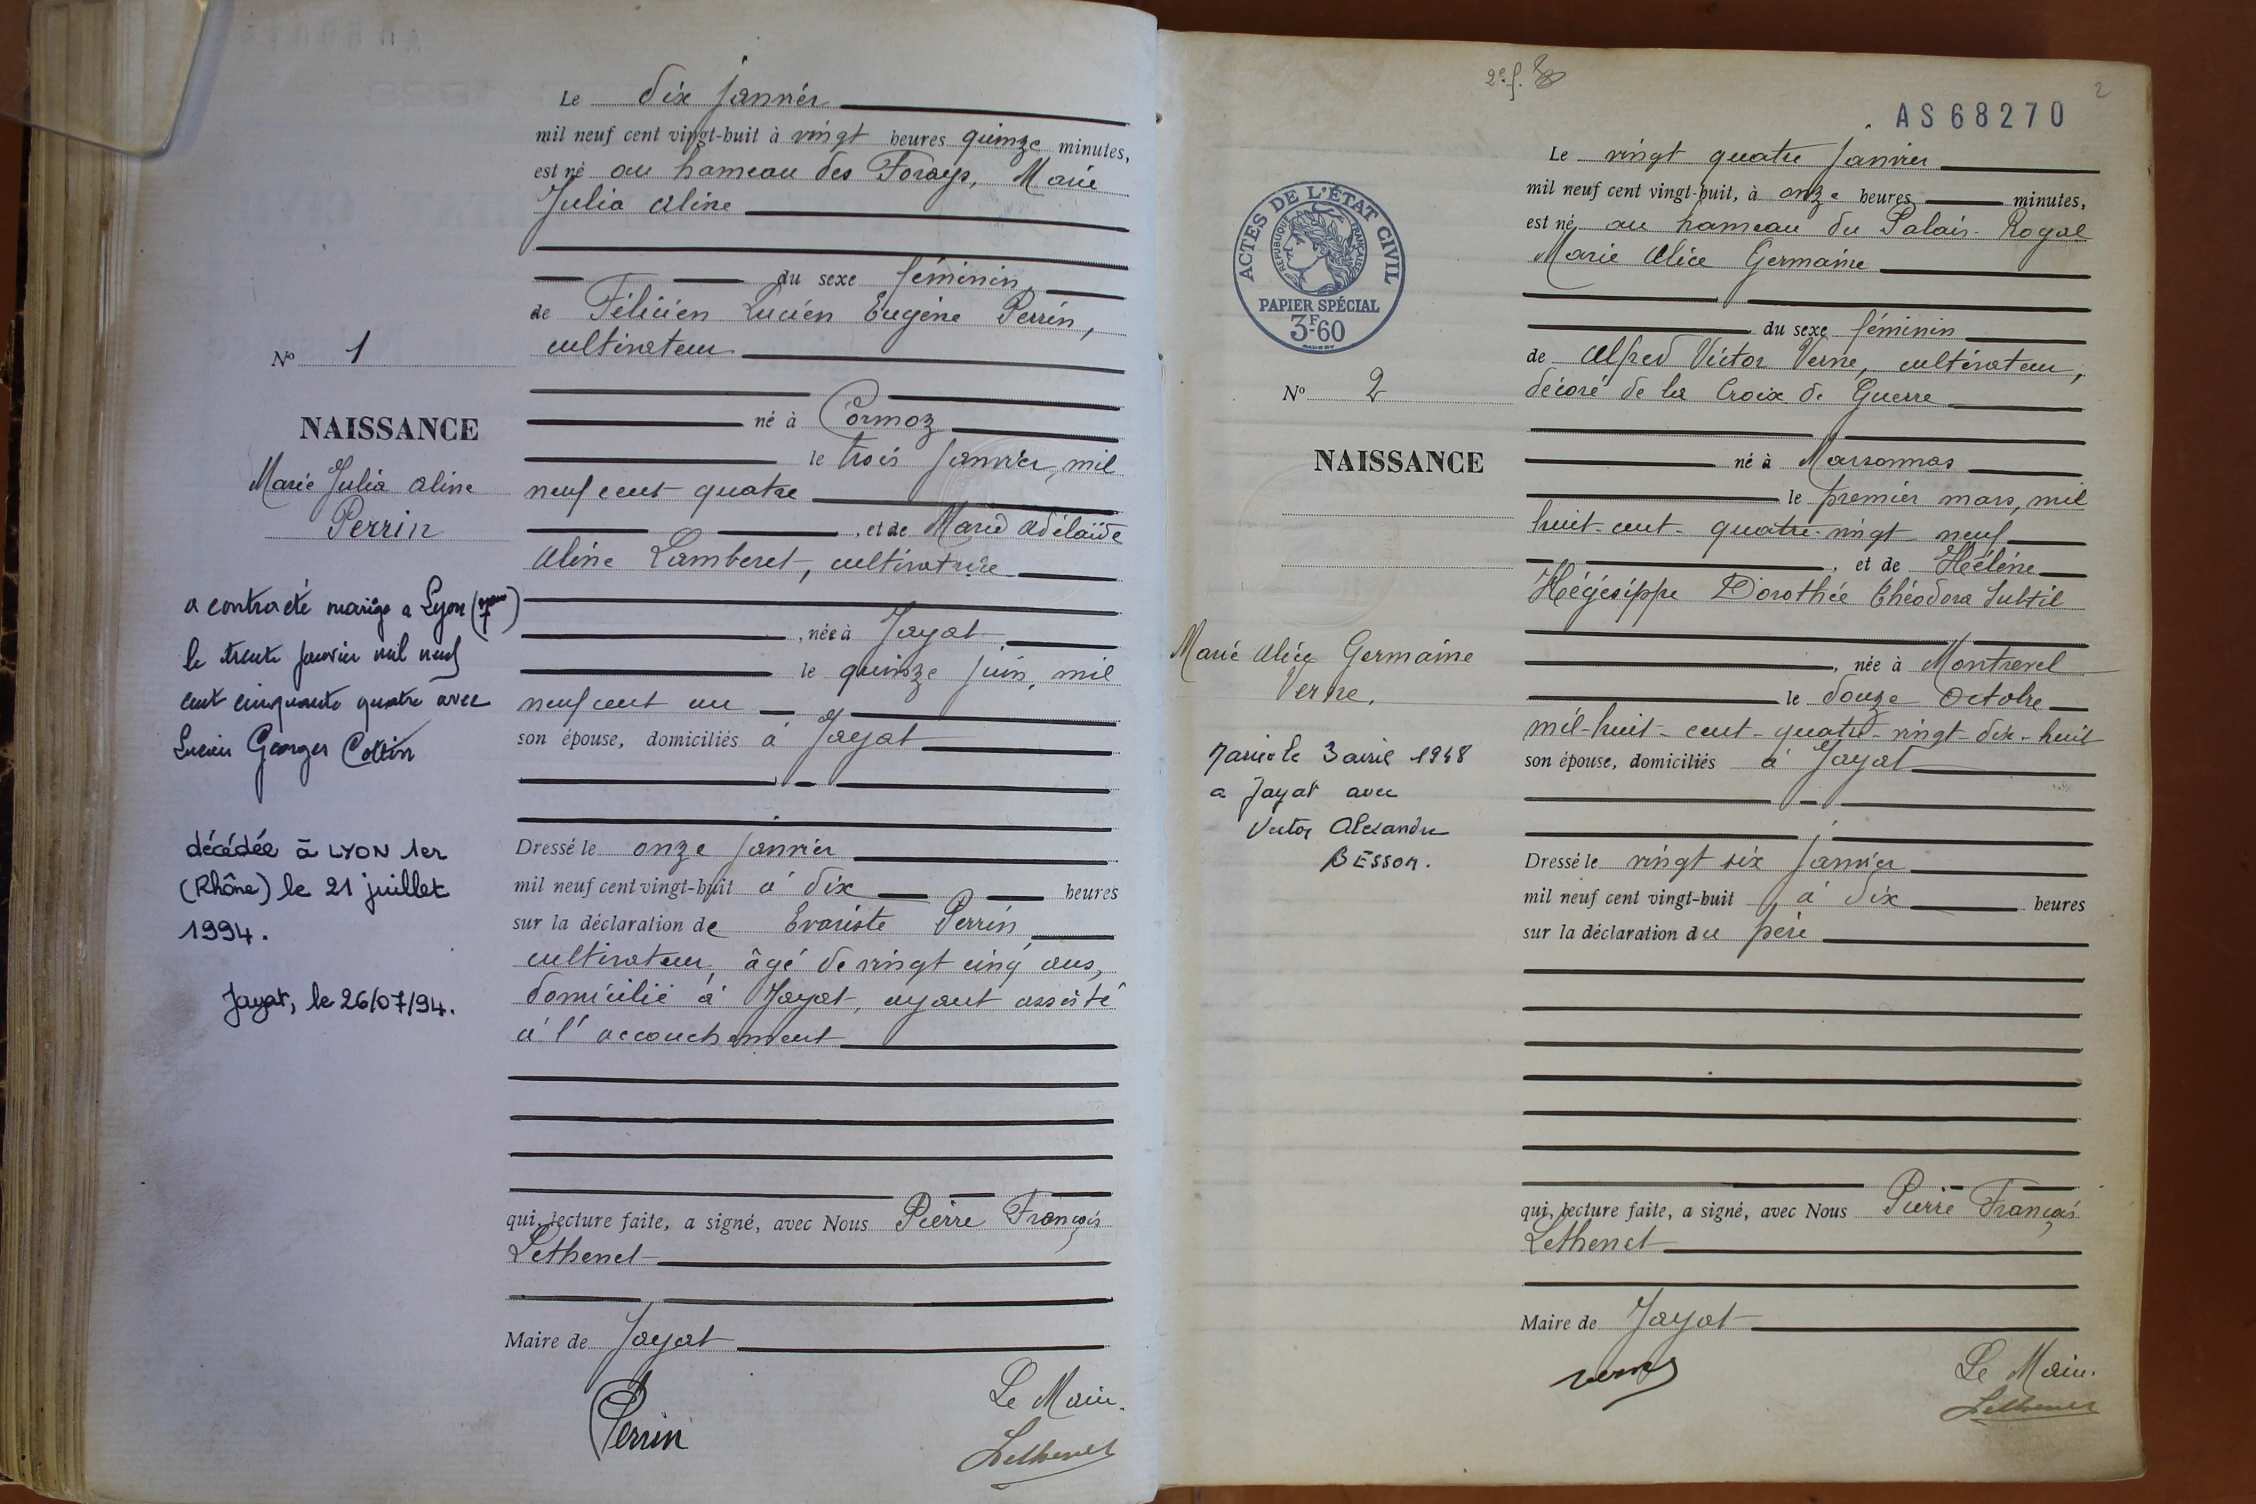 Le dix janvier
mil neuf cent vingt-huit à vingt heures quinze minutes,
est né au hameau des Forays, Marie
Julia Aline
du sexe féminin,
de Félicien Lucien Eugène Perrin,
cultivateur
né à Cormoz
le trois janvier, mil
neuf cent quatre
, et de Marie Adélaïde
Aline Lamberet, cultivatrice
, née à Jayat
le quinze juin, mil
neuf cent un
son épouse, domiciliés à Jayat
Dressé le onze janvier
mil neuf cent vingt-huit à dix heures
sur la déclaration de Evariste Perrin,
cultivateur, âgé de vingt cinq ans,
domicilié à Jayat, ayant assisté
à l'accouchement
qui, lecture faite, a signé, avec Nous Pierre François
Lethenet
Maire de Jayat
Le Maire.
Perrin
Lethenet
N° 1
NAISSANCE
Marie Julia Aline
Perrin
a contracté mariage a Lyon
le trente janvier mil neuf
cent cinquante quatre avec
Lucien Georges Collin
décédée à LYON 1er
(Rhône) le 21 juillet
1994.
Jayat, le 26/07/94.
2e f.
2
AS 68270
ACTES DE L'ÉTAT CIVIL
RÉPUBLIQUE FRANÇAISE
PAPIER SPÉCIAL
3F60
Le vingt quatre janvier
mil neuf cent vingt-huit, à onze heures minutes,
est né au hameau du Palais-Royal
Marie Alice Germaine
du sexe féminin
de Alfred Victor Verne, cultivateur,
décoré de la Croix de Guerre
né à Marsonnas
le premier mars, mil
huit-cent-quatre-vingt neuf
, et de Hélène
Hégésippe Dorothée Théodora Subtil
, née à Montrevel
le douze Octobre
mil-huit-cent-quatre-vingt-dix-huit
son épouse, domiciliés à Jayat
Dressé le vingt six janvier
mil neuf cent vingt-huit, à dix heures
sur la déclaration du père
qui, lecture faite, a signé, avec Nous Pierre François
Lethenet
Maire de Jayat
Verne
Le Maire.
Lethenet
N° 2
NAISSANCE
Marie Alice Germaine
Verne.
Mariée le 3 avril 1948
a Jayat avec
Victor Alexandre
BESSON.